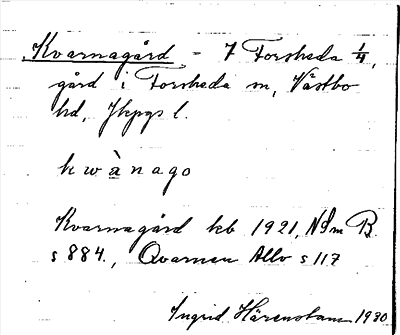 Kvarnagård - 7 Forsheda 1/4,
gård i Forsheda sn, Västbo
hd, Jkpgs l.
kwànago
Kvarnagård kb 1921, NSm B
s 884., Qvarnen Allv s 117
Ingrid Härenstam 1930